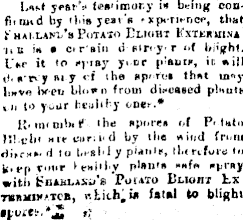 Last year's testimony is being con-
firmed by this year's experience, that
SHARLAND'S POTATO BLIGHT EXTERMINA
TOR is a certain destroyer of blight.
Use it to spray your plants, it will
destroy any of the spores that may
have been blown from diseased plants
on to your healthy ones.*
Remember the spores of Potato
Blight are carried by the wind from
diseased to healthy plants, therefore to
keep your healthy plants safe spray
with SHARLAND'S POTATO BLIGHT EX-
TERMINATOR, which is fatal to blight
spores.*